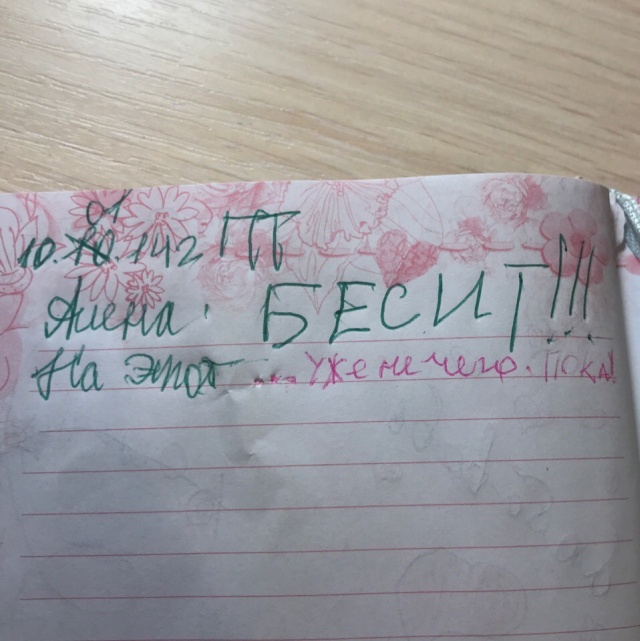 10.01.142 ПТ
Алена: БЕСИТ!!!
На этот .... уже не чего. ПОКА!